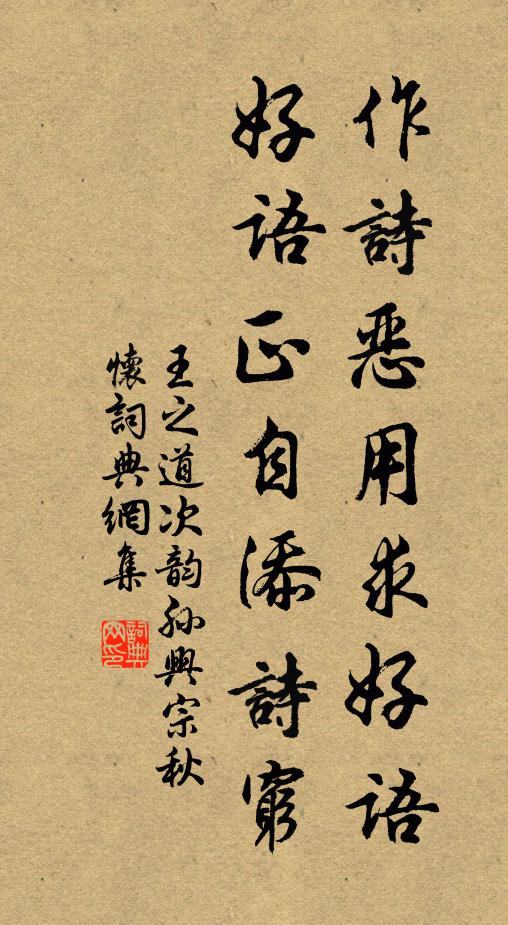 作詩惡用求好語
好語正自添詩窮
王之道次韵孙興宗秋
懷詞典網集
詞典網印